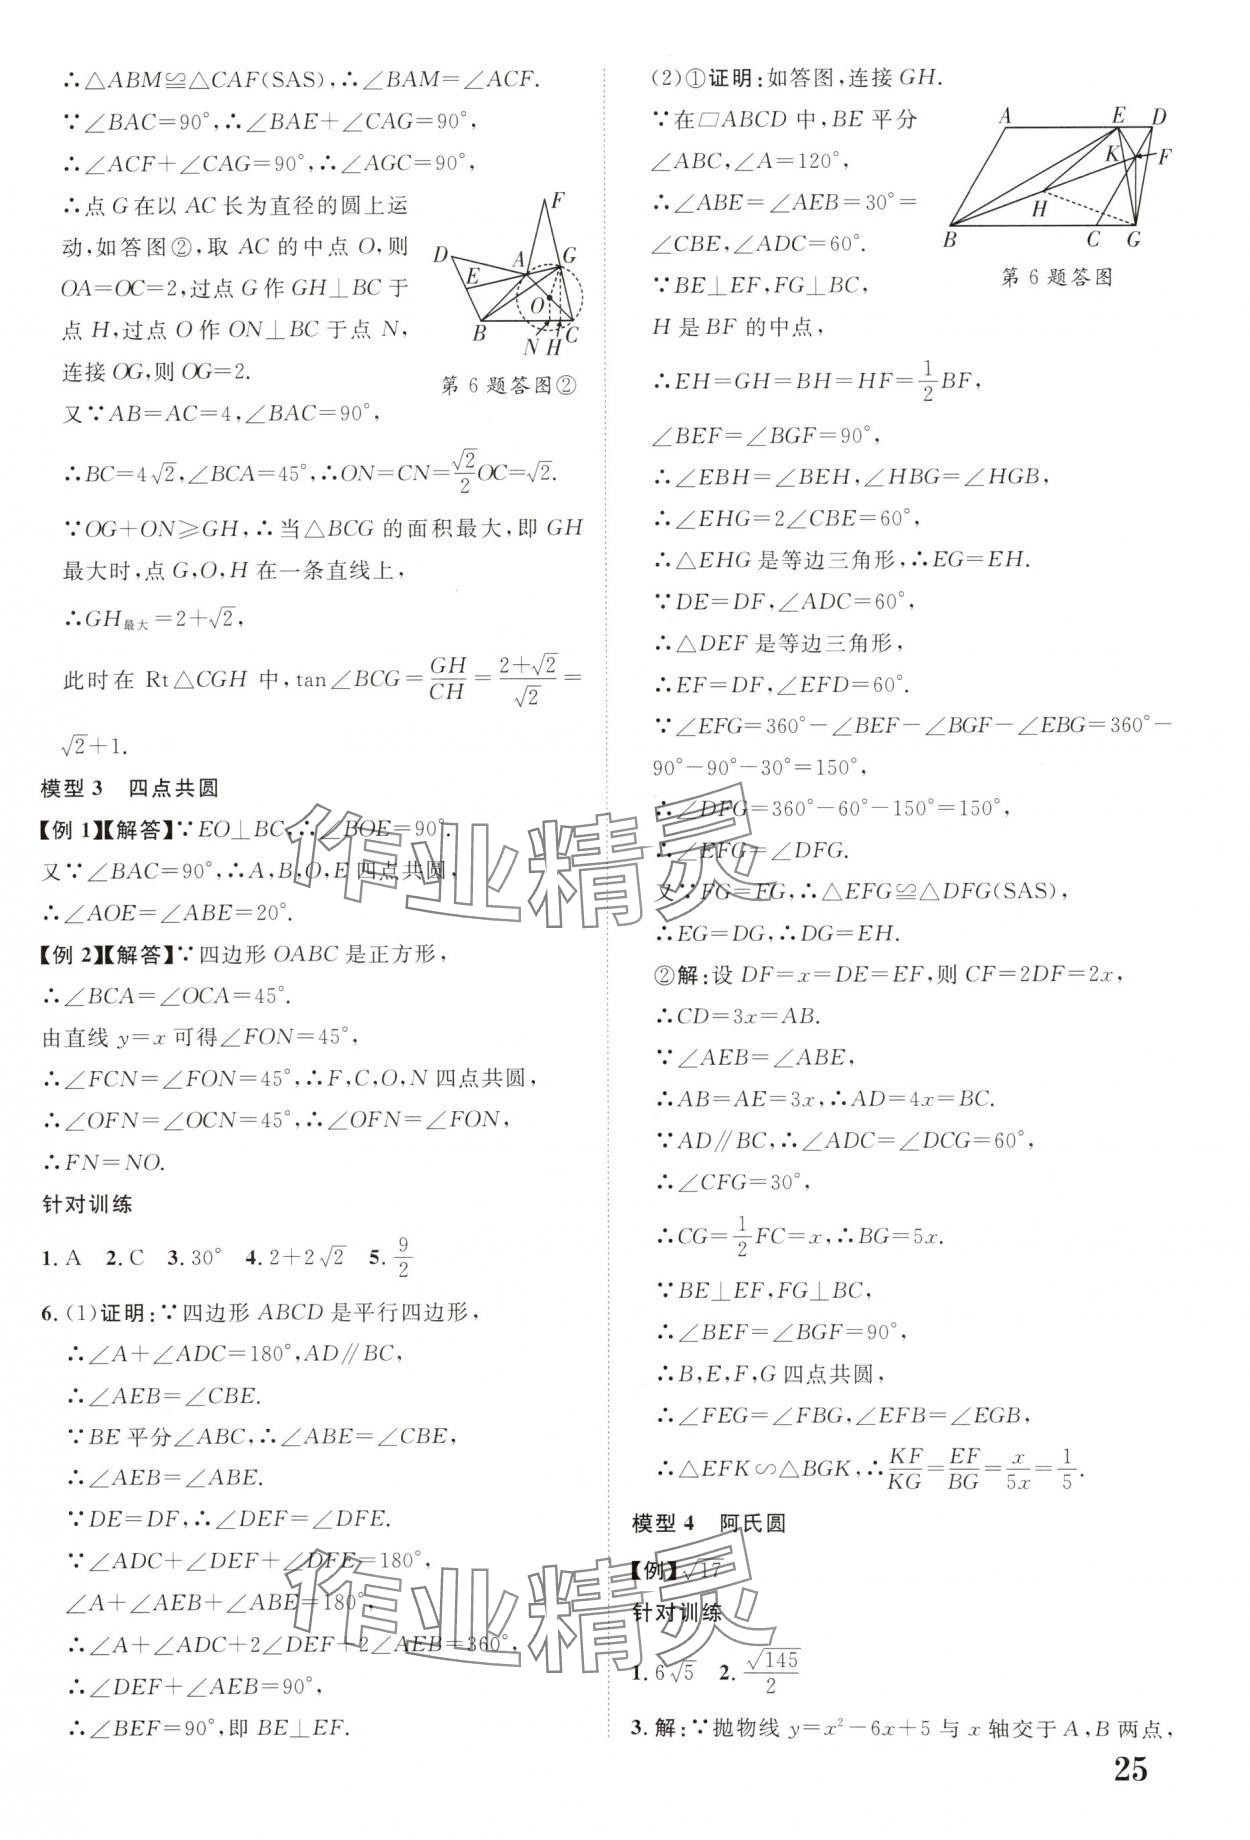 ∴△ABM≌△CAF(SAS),∴∠BAM=∠ACF.
∵∠BAC=90°,∴∠BAE+∠CAG=90°,
∴∠ACF+∠CAG=90°,∴∠AGC=90°,
∴点G在以AC长为直径的圆上运
动,如答图②,取AC的中点O,则
OA=OC=2,过点G作GH⊥BC于
点H,过点O作ON⊥BC于点N,
连接OG,则OG=2.
F
D
E
A
G
O
B
C
N H
第6题答图②
又∵AB=AC=4,∠BAC=90°,
∴BC=4√2,∠BCA=45°,∴ON=CN=√2/2OC=√2.
∵OG+ON≥GH,∴当△BCG的面积最大,即GH
最大时,点G,O,H在一条直线上,
∴GH最大=2+√2,
此时在Rt△CGH中,tan∠BCG=GH/CH=(2+√2)/√2=
√2+1.
模型3 四点共圆
【例1】【解答】∵EO⊥BC,∴∠BOE=90°.
又∵∠BAC=90°,∴A,B,O,E四点共圆,
∴∠AOE=∠ABE=20°.
【例2】【解答】∵四边形OABC是正方形,
∴∠BCA=∠OCA=45°.
由直线y=x可得∠FON=45°,
∴∠FCN=∠FON=45°,∴F,C,O,N四点共圆,
∴∠OFN=∠OCN=45°,∴∠OFN=∠FON,
∴FN=NO.
针对训练
1. A 2. C 3. 30° 4. 2+2√2 5. 9/2
6. (1)证明:∵四边形ABCD是平行四边形,
∴∠A+∠ADC=180°,AD∥BC,
∴∠AEB=∠CBE.
∵BE平分∠ABC,∴∠ABE=∠CBE,
∴∠AEB=∠ABE.
∵DE=DF,∴∠DEF=∠DFE.
∵∠ADC+∠DEF+∠DFE=180°,
∠A+∠AEB+∠ABE=180°,
∴∠A+∠ADC+2∠DEF+2∠AEB=360°,
∴∠DEF+∠AEB=90°,
∴∠BEF=90°,即BE⊥EF.
(2)①证明:如答图,连接GH.
∵在▱ABCD中,BE平分
∠ABC,∠A=120°,
∴∠ABE=∠AEB=30°=
∠CBE,∠ADC=60°.
∵BE⊥EF,FG⊥BC,
H是BF的中点,
A
E
D
K
F
H
B
C
G
第6题答图
∴EH=GH=BH=HF=1/2BF,
∠BEF=∠BGF=90°,
∴∠EBH=∠BEH,∠HBG=∠HGB,
∴∠EHG=2∠CBE=60°,
∴△EHG是等边三角形,∴EG=EH.
∵DE=DF,∠ADC=60°,
∴△DEF是等边三角形,
∴EF=DF,∠EFD=60°.
∵∠EFG=360°-∠BEF-∠BGF-∠EBG=360°-
90°-90°-30°=150°,
∴∠DFG=360°-60°-150°=150°,
∴∠EFG=∠DFG.
又∵FG=FG,∴△EFG≌△DFG(SAS),
∴EG=DG,∴DG=EH.
②解:设DF=x=DE=EF,则CF=2DF=2x,
∴CD=3x=AB.
∵∠AEB=∠ABE,
∴AB=AE=3x,∴AD=4x=BC.
∵AD∥BC,∴∠ADC=∠DCG=60°,
∴∠CFG=30°,
∴CG=1/2FC=x,∴BG=5x.
∵BE⊥EF,FG⊥BC,
∴∠BEF=∠BGF=90°,
∴B,E,F,G四点共圆,
∴∠FEG=∠FBG,∠EFB=∠EGB,
∴△EFK∽△BGK,∴KF/KG=EF/BG=x/5x=1/5.
模型4 阿氏圆
【例】√17
针对训练
1. 6√5 2. √145/2
3. 解:∵抛物线y=x²-6x+5与x轴交于A,B两点,
25
作业精灵
作业精灵